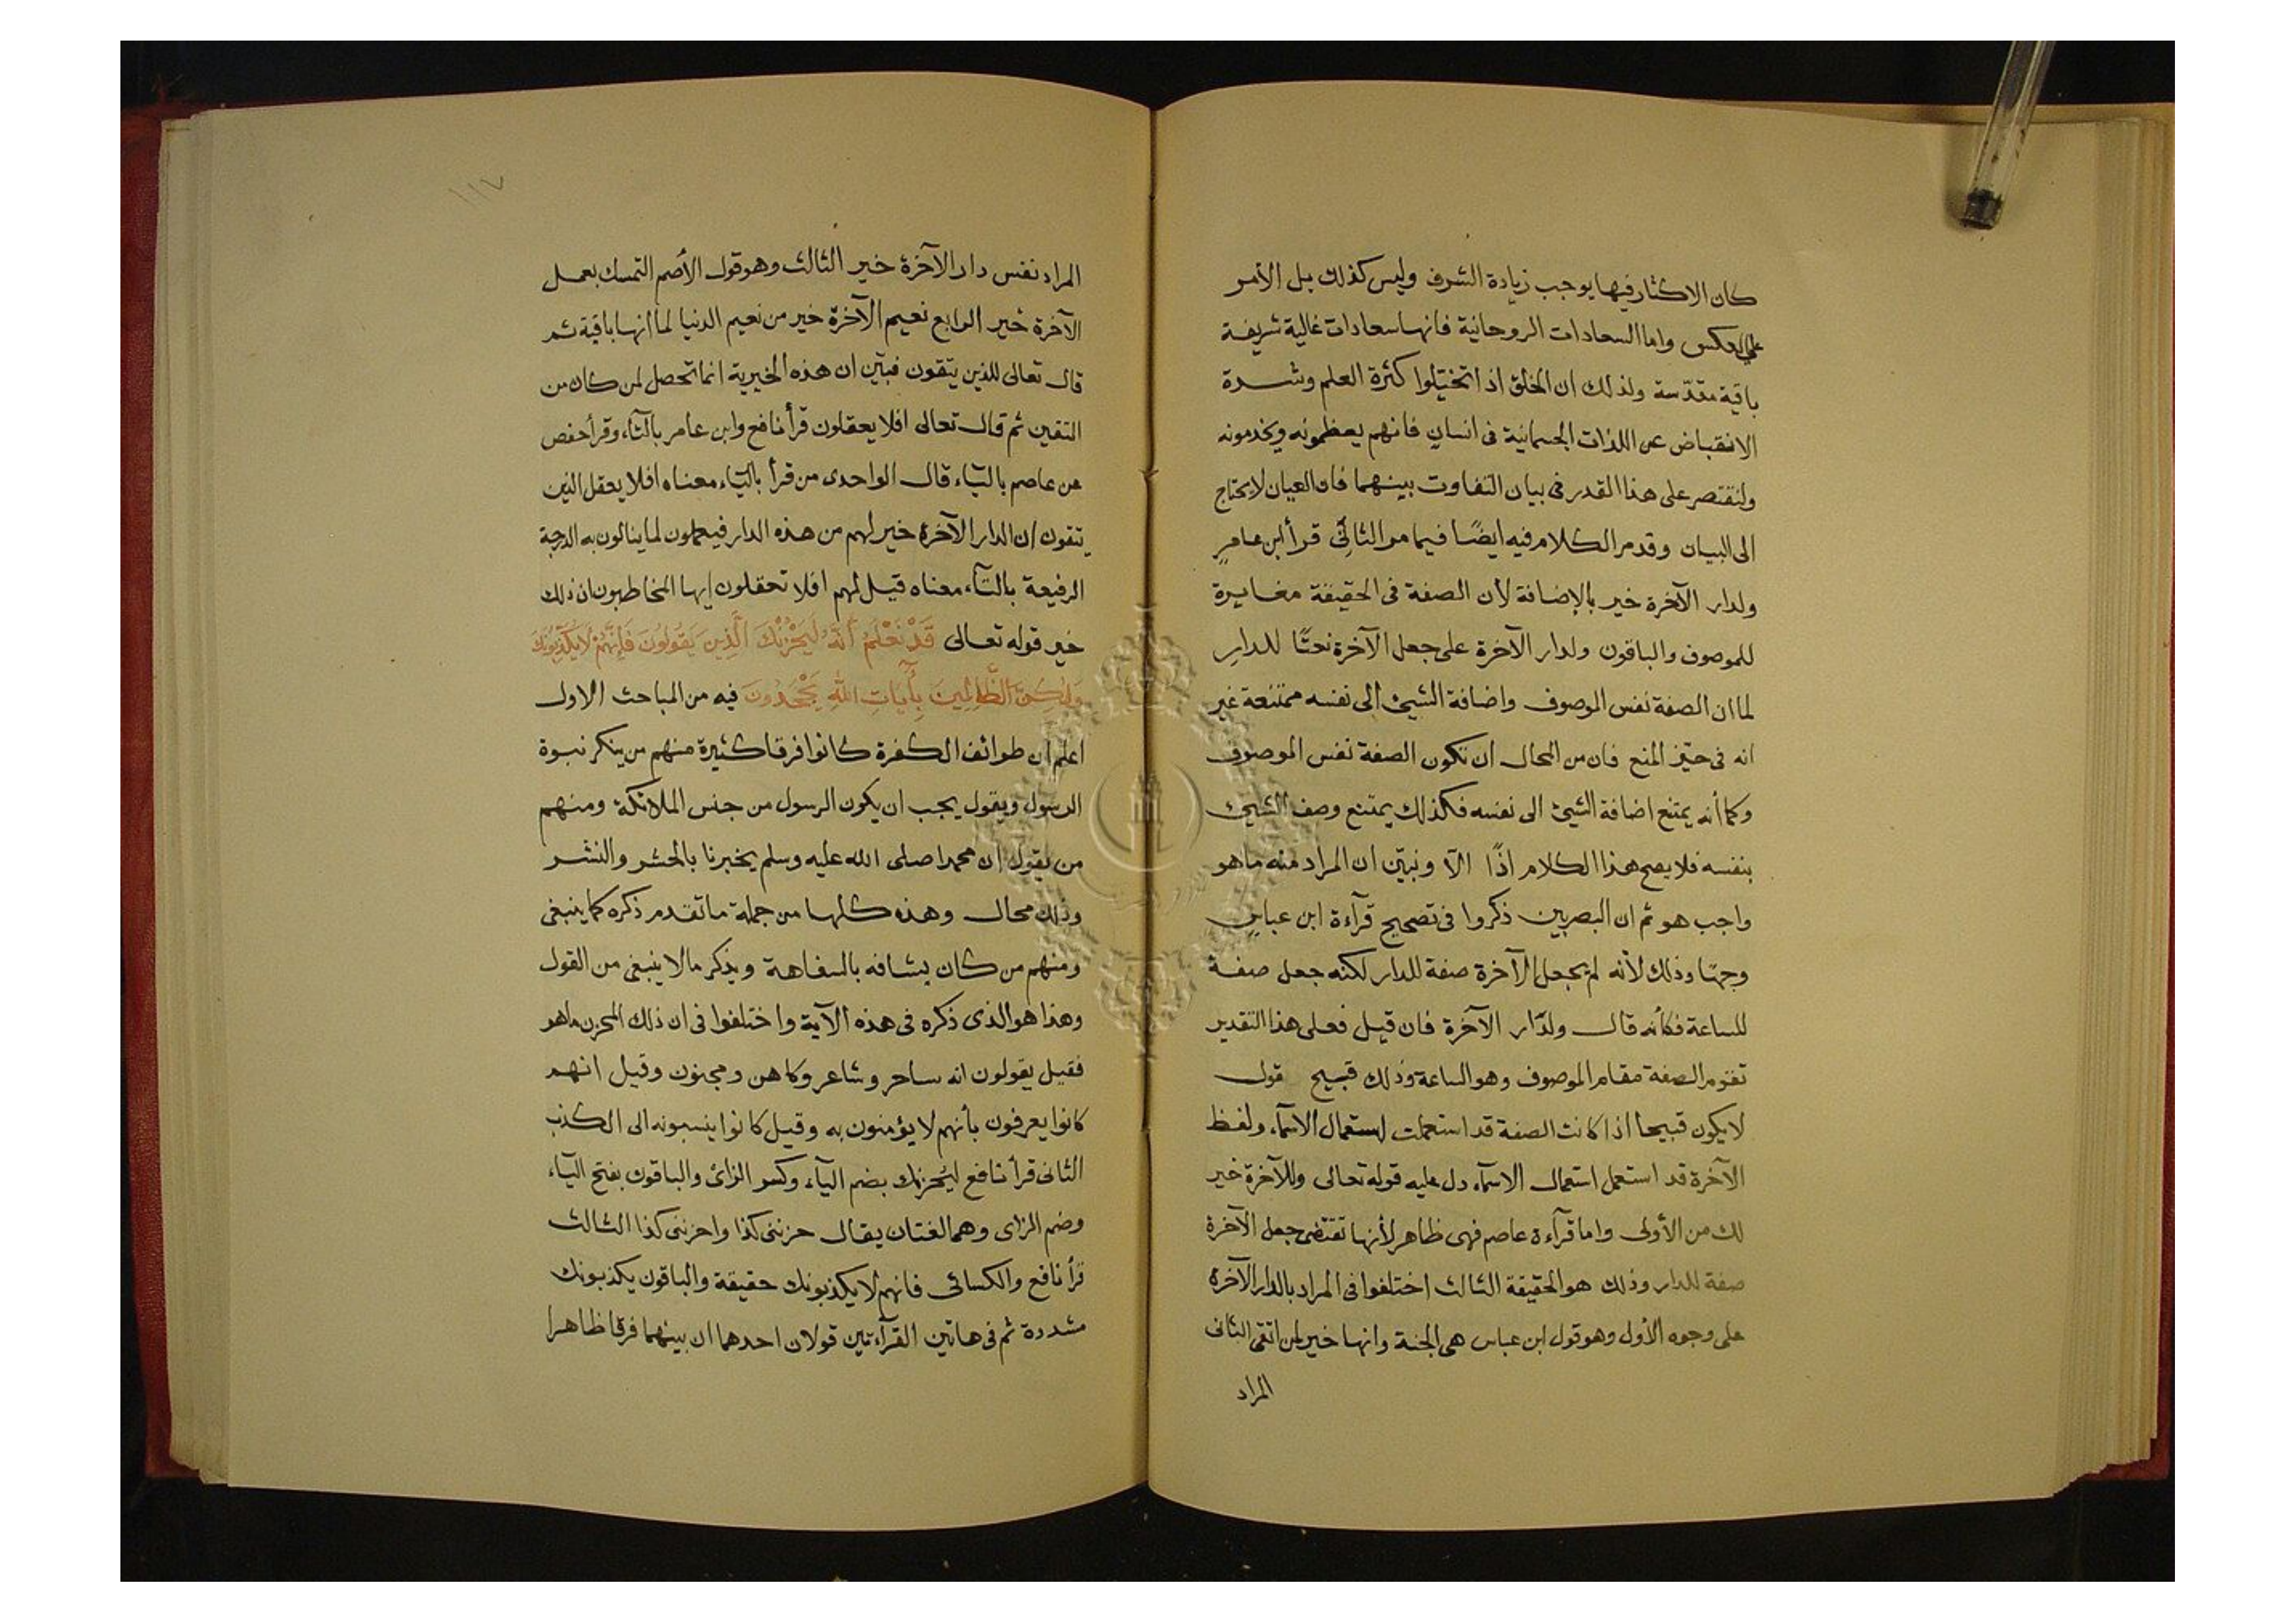 كان الاكثار فيها يوجب زيادة الشرف وليس كذلك بل الأمر
على العكس واما السعادات الروحانية فانها سعادات غالية شريفة
باقية مقدّسة ولذلك ان الخلق اذا تخيّلوا كثرة العلم وشدة
الانقباض عن اللذات الجسمانية فى انسان فانهم يعظمونه ويخدمونه
ولنقتصر على هذا القدر فى بيان التفاوت بينهما فان العيان لا يحتاج
الى البيان وقد مر الكلام فيه ايضًا فيما مر الثانى قرأ ابن عامر
ولدار الآخرة خير بالإضافة لأن الصفة فى الحقيقة مغايرة
للموصوف والباقون ولدار الآخرة على جعل الآخرة نعتًا للدار
لما ان الصفة نفس الموصوف واضافة الشيئ الى نفسه ممتنعة غير
انه فى حيّز المنع فان من المحال ان تكون الصفة نفس الموصوف
وكما أنه يمتنع اضافة الشيئ الى نفسه فكذلك يمتنع وصف الشيئ
بنفسه فلا يصح هذا الكلام اذًا الا ونبيّن ان المراد منه ما هو
واجب هو ثم ان البصريين ذكروا فى تصحيح قرآءة ابن عباس
وجهًا وذلك لأنه لم يجعل الآخرة صفة للدار لكنه جعل صفة
للساعة فكأنه قال ولدّار الآخرة فان قيل فعلى هذا التقدير
تقوم الصفة مقام الموصوف وهو الساعة وذلك قبيح قول
لا يكون قبيحا اذا كانت الصفة قد استعملت استعمال الاسمآء ولفظ
الآخرة قد استعمل استعمال الاسمآء دل عليه قوله تعالى وللآخرة خير
لك من الأولى واما قرآءة عاصم فهى ظاهر لأنها تقتضى جعل الآخرة
صفة للدار وذلك هو الحقيقة الثالث اختلفوا فى المراد بالدار الآخرة
على وجوه الأول وهو قول ابن عباس هى الجنة وانها خير لمن اتقى الثانى
المراد
١١٧
المراد نفس دار الآخرة خير الثالث وهو قول الأصم التمسك بعمل
الآخرة خير الرابع نعيم الآخرة خير من نعيم الدنيا لما انها باقية ثم
قال تعالى للذين يتقون فبيّن ان هذه الخيرية انما تحصل لمن كان من
المتقين ثم قال تعالى افلا يعقلون قرأ نافع وابن عامر بالتآء وقرأ حفص
عن عاصم باليّاء قال الواحدى من قرأ باليّاء معناه افلا يعقل الذين
يتقون ان الدار الآخرة خير لهم من هذه الدار فيعملون لما ينالون به الدرجة
الرفيعة بالتآء معناه قيل لهم افلا تعقلون ايها المخاطبون ان ذلك
خير قوله تعالى قَدْ نَعْلَمُ اَنَّهُ لَيَحْزُنُكَ الَّذِينَ يَقُولُونَ فَاِنَّهُمْ لَا يُكَذِّبُونَكَ
وَلٰكِنَّ الظَّالِمِينَ بِآيَاتِ اللهِ يَجْحَدُونَ فيه من المباحث الاول
اعلم ان طوائف الكفرة كانوا فرقا كثيرة منهم من ينكر نبوة
الرسول ويقول يجب ان يكون الرسول من جنس الملائكة ومنهم
من يقول ان محمدا صلى الله عليه وسلم يخبرنا بالحشر والنشر
وذلك محال وهذه كلها من جملة ما تقدم ذكره كما ينبغى
ومنهم من كان يشافه بالسفاهة ويذكر ما لا ينبغى من القول
وهذا هو الذى ذكره فى هذه الآية واختلفوا فى ان ذلك المحزن ما هو
فقيل يقولون انه ساحر وشاعر وكاهن ومجنون وقيل انهم
كانوا يعرفون بأنهم لا يؤمنون به وقيل كانوا ينسبونه الى الكذب
الثانى قرأ نافع ليُحزنك بضم اليآء وكسر الزائ والباقون بفتح اليآء
وضم الزاى وهما لغتان يقال حزننى كذا واحزننى كذا الثالث
قرأ نافع والكسائى فانهم لا يكذبونك حقيقة والباقون يكذبونك
مشددة ثم فى هاتين القرآءتين قولان احدهما ان بينهما فرقا ظاهرا